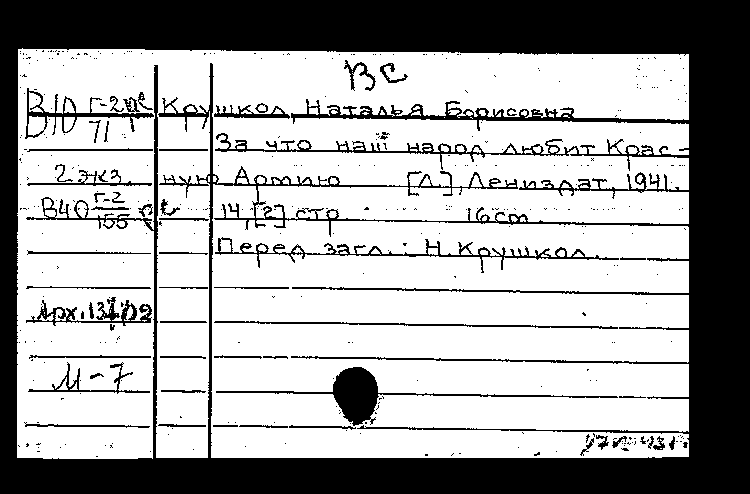 ВС
В10 Г-2 Крушкол, Наталья Борисовна
71
За что наш народ любит Крас-
2 экз. ную Армию [Л.], Лениздат, 1941.
В40 Г-2 14,[2] стр 16cm.
155
Перед загл.: Н. Крушкол.
Арх.
М-7